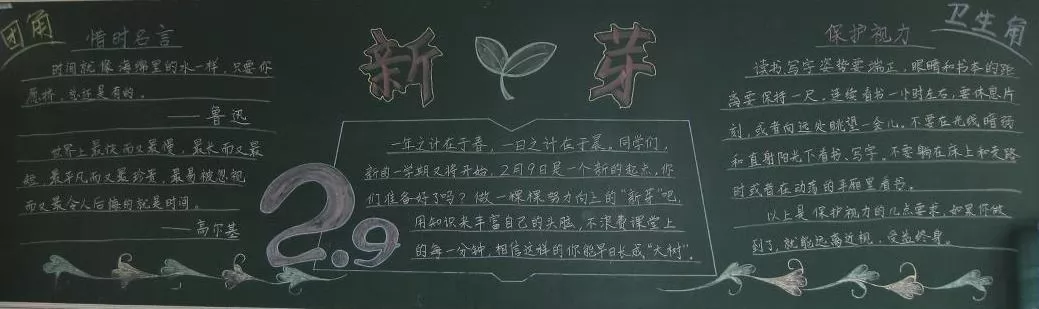 团角
惜时名言
时间就像海绵里的水一样，只要你
愿挤，总还是有的。
——鲁迅
世界上最快而又最慢，最长而又最
短，最平凡而又最珍贵，最易被忽视
而又最令人后悔的就是时间。
——高尔基
新芽
一年之计在于春，一日之计在于晨。同学们，
新的一学期又将开始，2月9日是一个新的起点，你
们准备好了吗？做一棵棵努力向上的“新芽”吧，
用知识来丰富自己的头脑，不浪费课堂上
的每一分钟，相信这样的你能早日长成“大树”。
2.9
卫生角
保护视力
读书、写字姿势要端正，眼睛和书本的距
离要保持一尺。连续看书一小时左右，要休息片
刻，或者向远处眺望一会儿。不要在光线暗弱
和直射阳光下看书、写字。不要躺在床上和走路
时或者在动荡的车厢里看书。
以上是保护视力的几点要求，如果你做
到了，就能远离近视，受益终身。